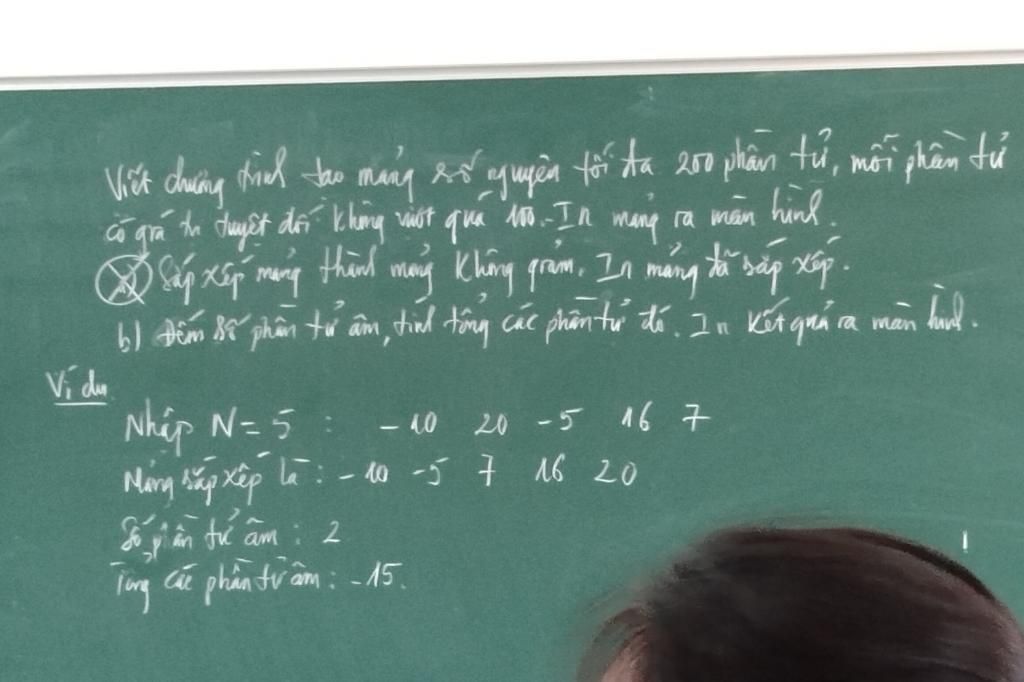 Viết chương trình tạo mảng số nguyên tối đa 200 phần tử, mỗi phần tử
có giá trị tuyệt đối không vượt quá 100. In mảng ra màn hình.
a) Sắp xếp mảng thành mảng không giảm. In mảng đã sắp xếp.
b) Đếm số phần tử âm, tính tổng các phần tử đó. In kết quả ra màn hình.
Ví dụ
Nhập N = 5 : -10 20 -5 16 7
Mảng sắp xếp là : -10 -5 7 16 20
Số phần tử âm : 2
Tổng các phần tử âm : -15.